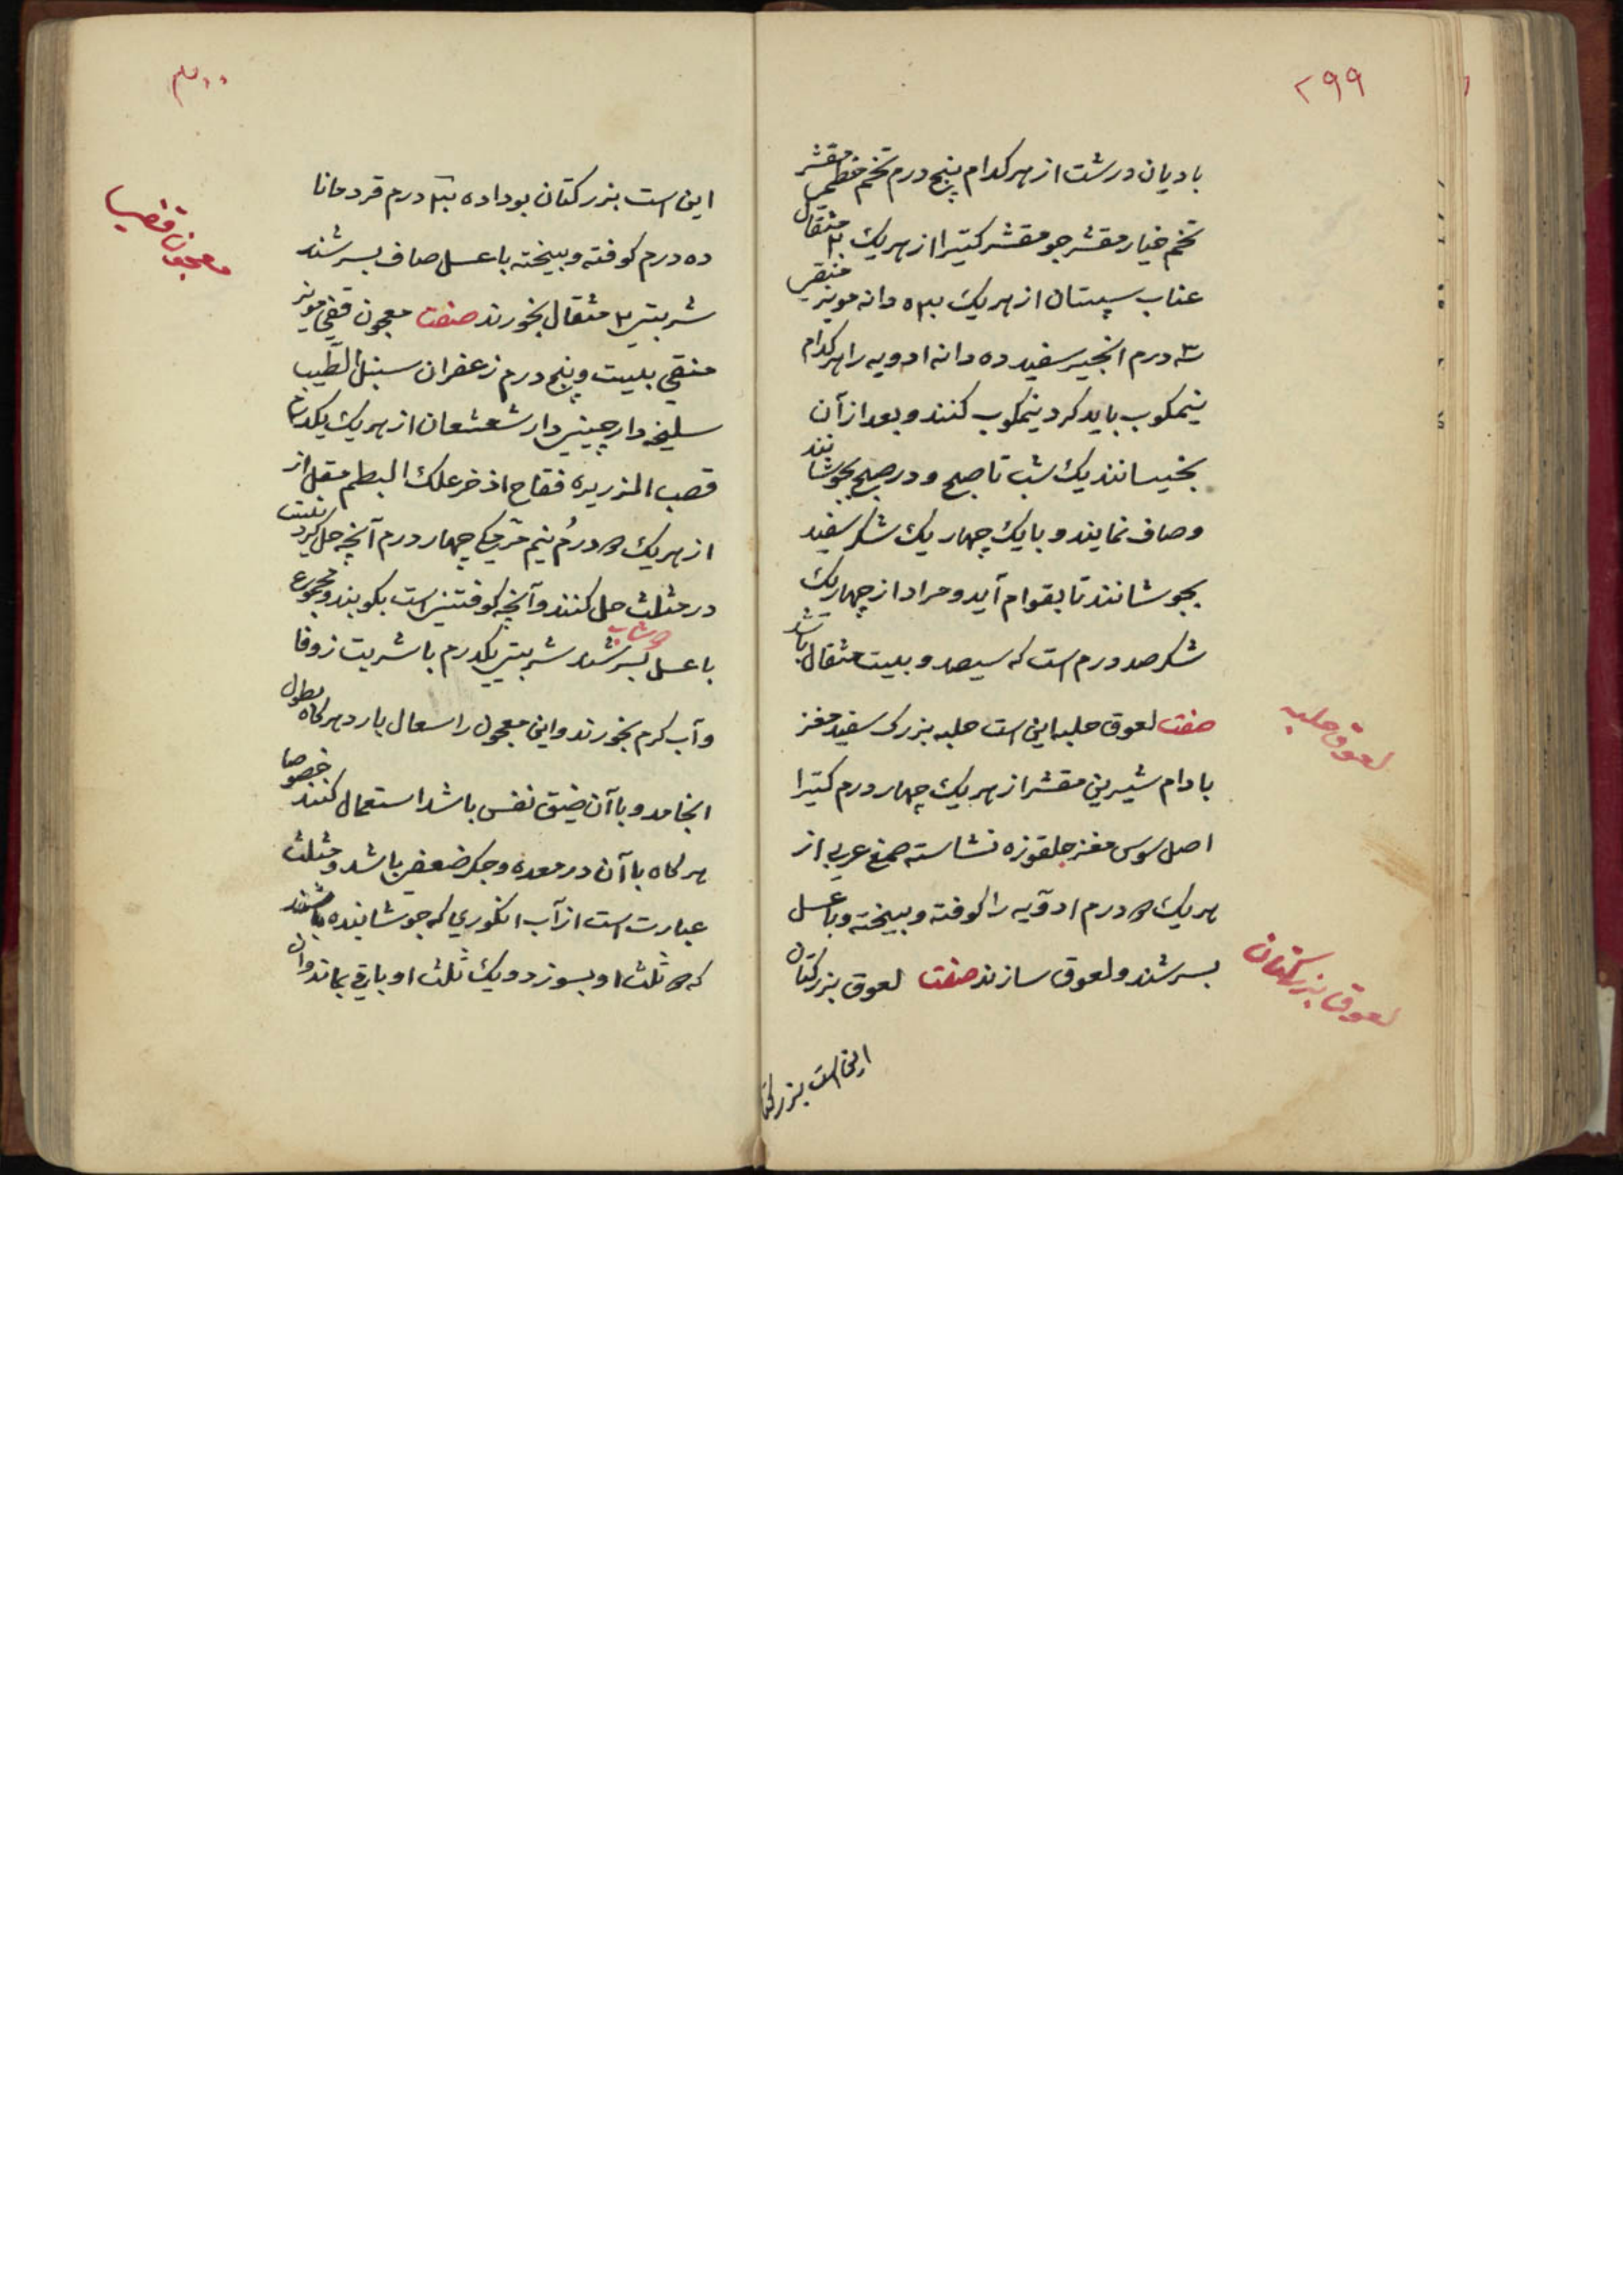 ۲۹۹
بادیان درشت از هر کدام پنج درم تخم خطمی مقشر
تخم خیار مقشر جو مقشر کتیرا از هریک ۲ مثقال
عناب سپستان از هریک دانه مویز منقی
درم انجیر سفید ده دانه ادویه را هر کدام
نیمکوب باید کرد نیمکوب کنند و بعد از آن
بخیسانند یک شب تا صبح و در صبح بجوشانند
و صاف نمایند و با یک چهار یک شکر سفید
بجوشانند تا بقوام آید و مراد از چهار یک
شکر صد درم است که سیصد و بیست مثقال باشد
صفت لعوق حلبه این است حلبه بزرک سفید مغز
بادام شیرین مقشر از هریک چهار درم کتیرا
اصل سوس مغز جلقوزه نشاسته صمغ عربی از
هریک درم ادویه را کوفته و بیخته و با عسل
بسرشند و لعوق سازند صفت لعوق بزرکتان
لعوق حلبه
لعوق بزرکتان
این است بزرکتا
۳۰۰
این است بزرکتان بوداده درم قردمانا
ده درم کوفته و بیخته با عسل صاف بسرشند
شربتی ۲ مثقال بخورند صفت معجون قفی مویز
منقی بیست و پنج درم زعفران سنبل الطیب
سلیخه دارچینی دارشعشعان از هریک یکدرم
قصب الزریره فقاح اذخر علک البطم مقل از
از هریک درم نیم چهار درم آنچه حل کردنیست
در مثلث حل کنند و آنچه کوفتنی است بکوبند و مجموع
با عسل بسرشند شربتی یکدرم با شربت زوفا
و آب کرم بخورند و این معجون را سعال بارد هرکاه بطول
انجامد و با آن ضیق نفس باشد استعمال کنند خصوصا
هرکاه با آن در معده و جکر ضعفی باشد و مثلث
عبارت است از آب انکوری که جوشانیده باشند
که ثلث او بسوزد و یک ثلث او باقی بماند و آن
معجون